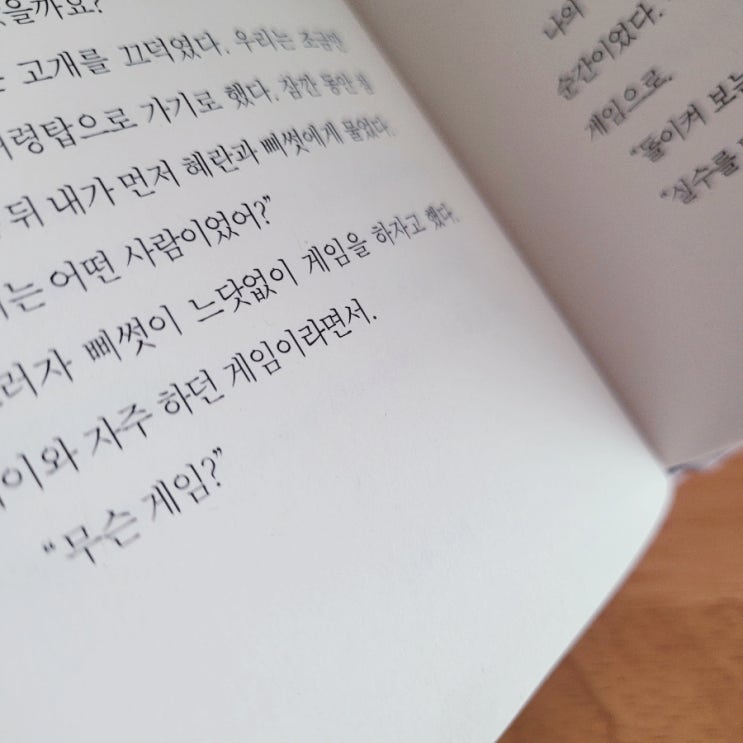 고개를 끄덕였다. 우리는 조금만
령탑으로 가기로 했다. 잠깐 동안
뒤 내가 먼저 혜란과 삐썻에게 물었다.
는 어떤 사람이었어?”
러자 삐썻이 느닷없이 게임을 하자고 했다.
이와 자주 하던 게임이라면서.
“무슨 게임?”
나의
순간이었다.
게임으로.
“돌이켜 보는
“실수를